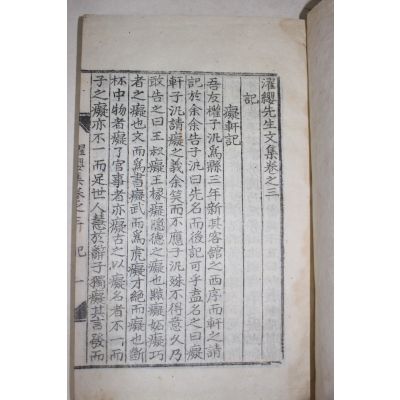 濯纓先生文集卷之三
記
癡軒記
吾友權子汎爲縣三年新其客館之西序而軒之請
記於余余告子汎曰先名而後記可乎盍名之曰癡
軒子汎請癡之義余笑而不應子汎殊不得意久乃
敢告之曰王叔癡王掾癡隱德之癡也黠癡妬癡巧
者之癡也文而爲書癡武而爲虎癡才絶而癡也斷
杯中物者癡了官事者亦癡古之以癡名者不一而
子之癡亦不一而足世人慧於辭子獨癡其言發而
濯纓集卷之三 記 一